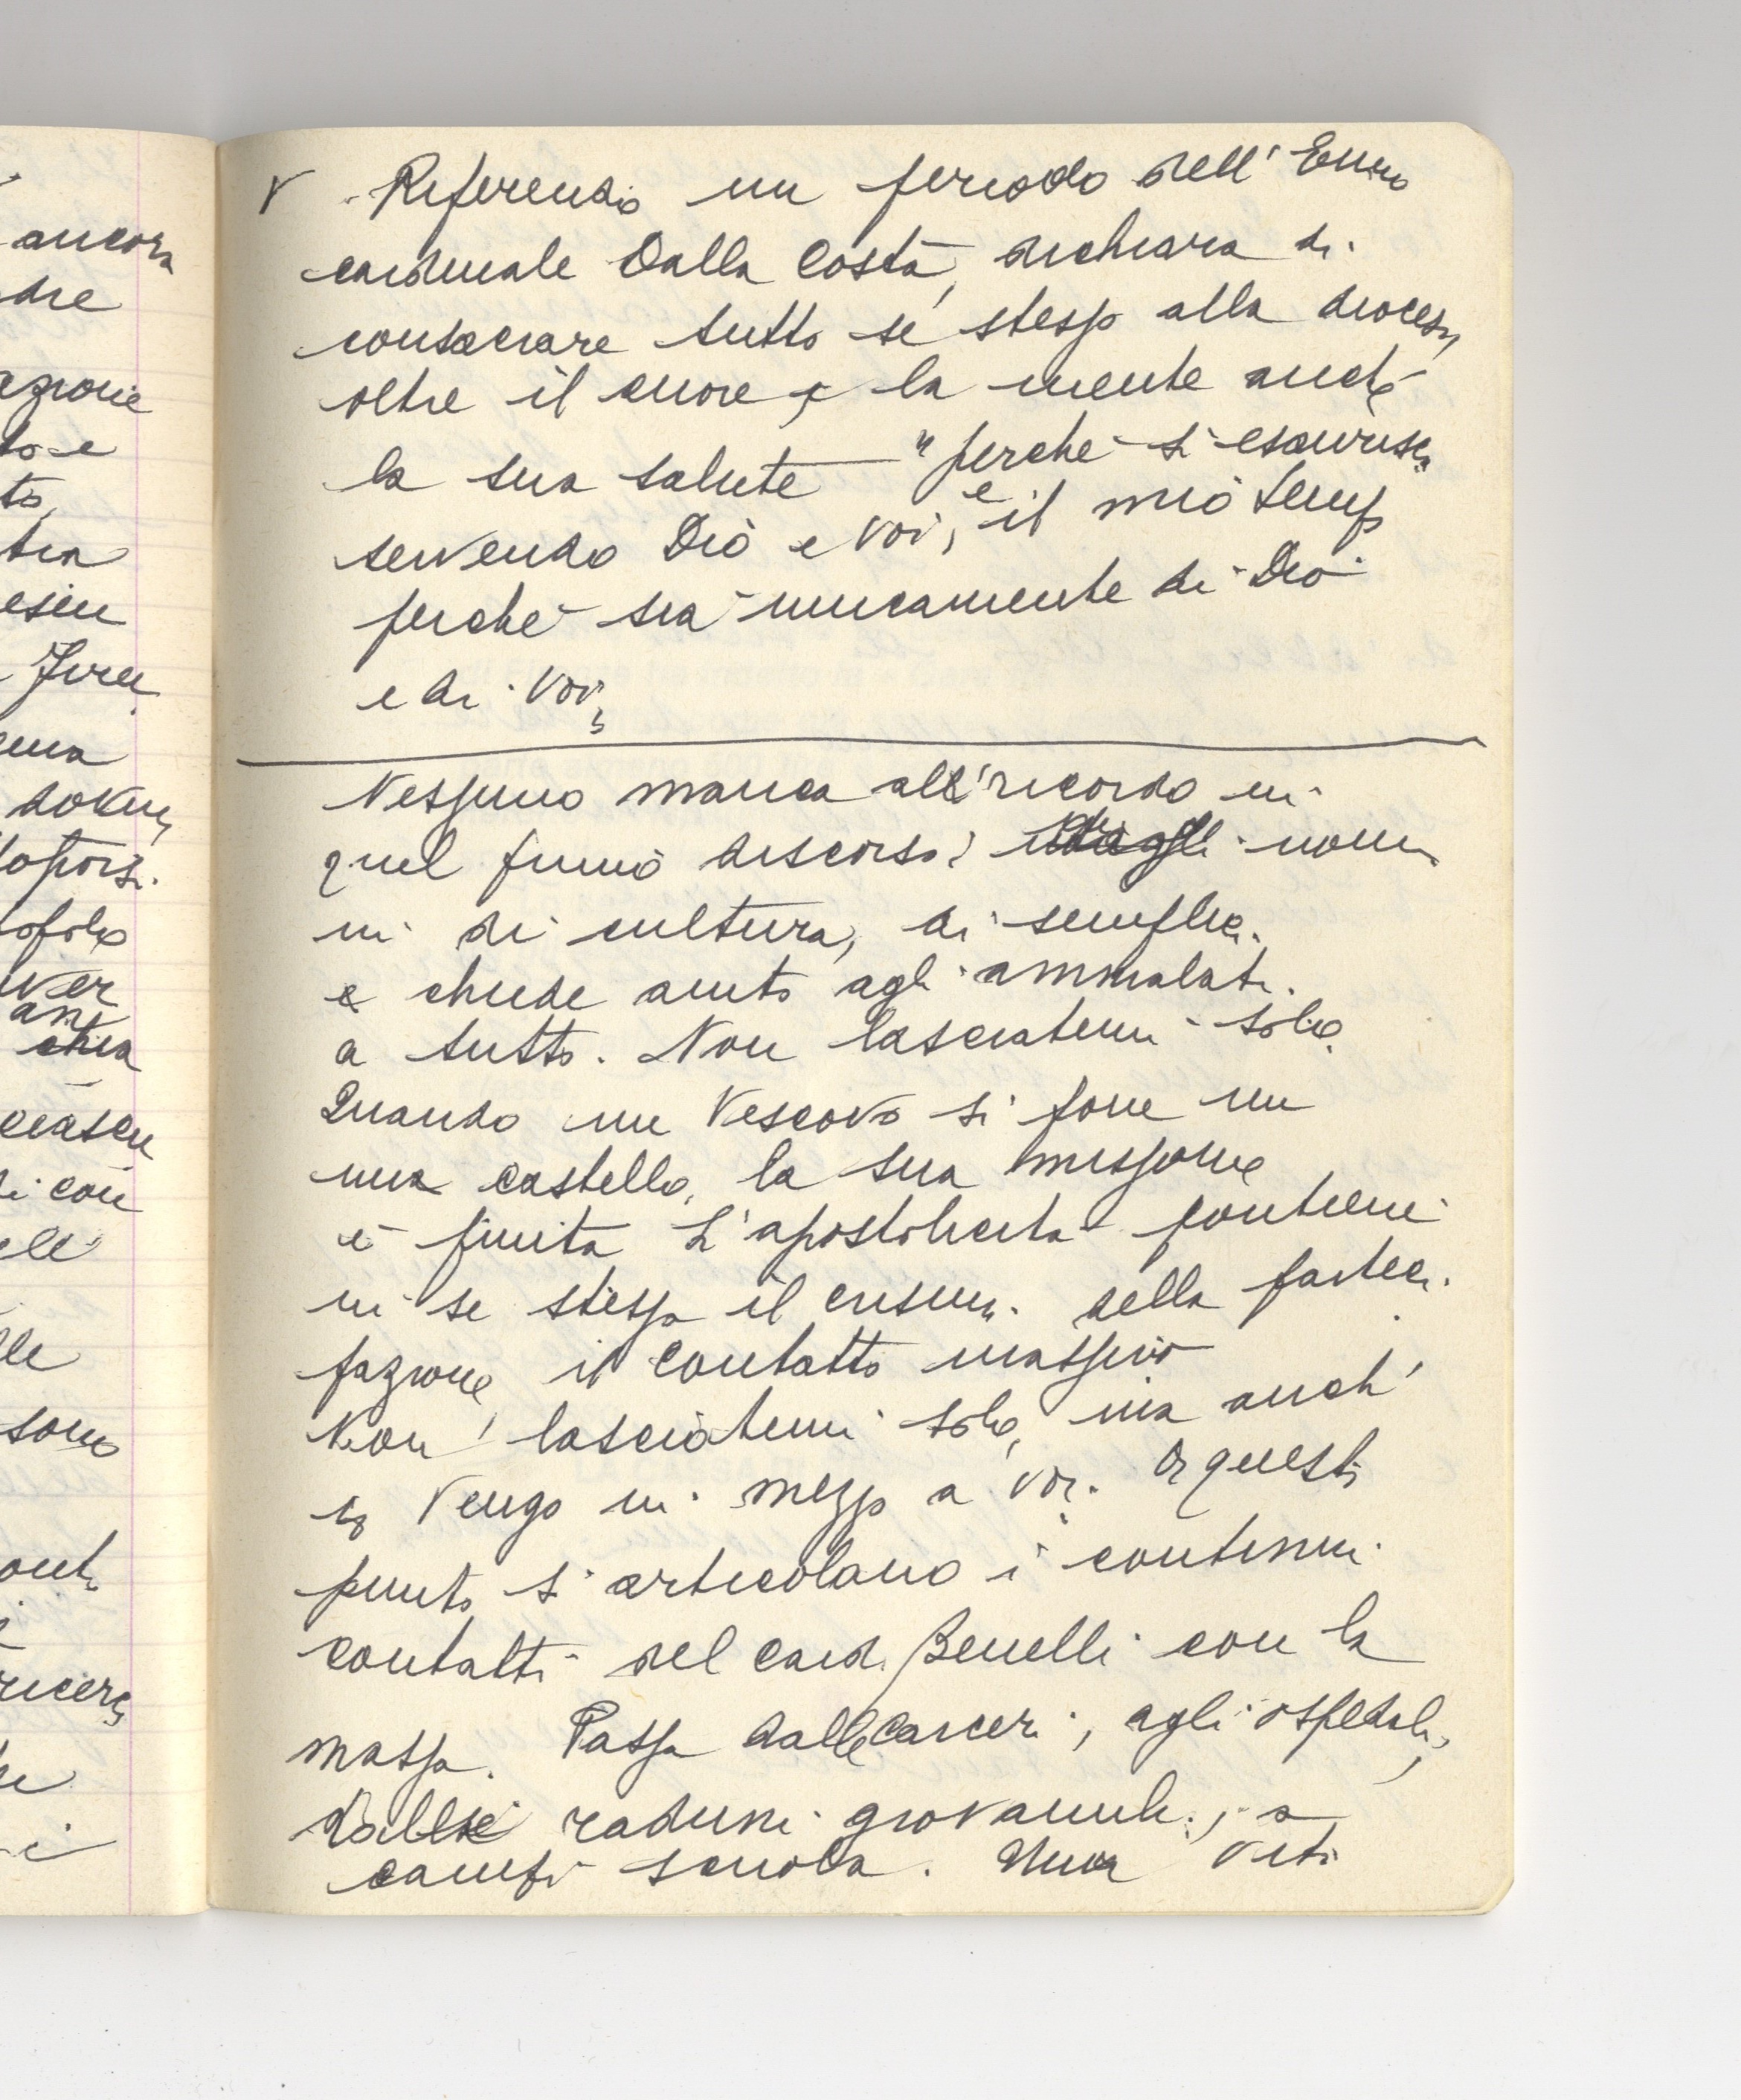 ancora
dre
azione
to e
to,
tra
esem
ma
sono
ciascu
di con
elle
ont
ricerc
V Riferendo un periodo dell'Em.mo
cardinale Dalla Costa, dichiara di
consacrare tutto se stesso alla diocesi,
oltre il cuore e la mente anche
la sua salute "perché si esaurisca
servendo Dio e voi, e il mio tempo
perché sia unicamente di Dio
e di voi,
Nessuno manca all'ricordo in
quel primo discorso: dagli uomi
ni di cultura, ai semplici.
e chiede aiuto agli ammalati.
a tutto. Non lasciatemi solo.
Quando un Vescovo si pone un
una castello, la sua missione
è finita L'apostolicità contiene
in se stessa il crisma della parteci
pazione, il contatto massivo
Non lasciatemi solo, ma anch'
io vengo in mezzo a voi. A questo
punto s'articolano i continui
contatti del card. Benelli con la
massa. Passa dalle carceri, agli ospedali,
dalle raduni giovanili, a
campi scuola. Una vita